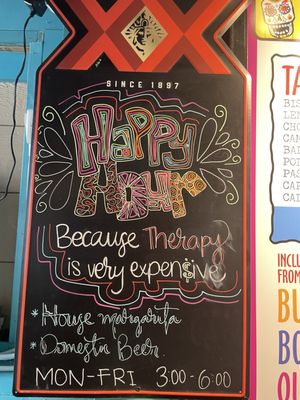 XX
SINCE 1897
Happy
Hour
Because Therapy
is very expen$ive
*House margarita
*Domestic Beer.
MON-FRI 3:00-6:00
TA
BIS
LEN
CHO
CAM
BAR
POL
PAS
CAR
CAD
INCLU
FROM
BU
BO
QU